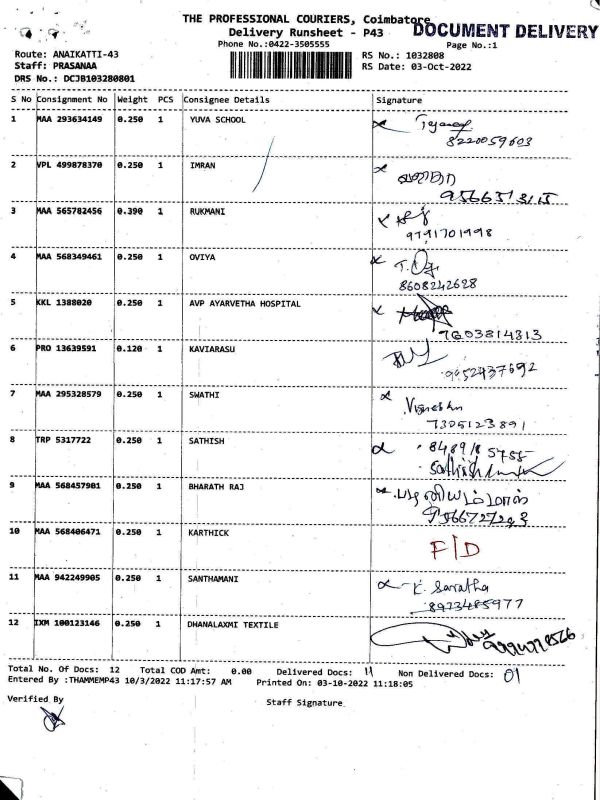 THE PROFESSIONAL COURIERS, Coimbatore
DOCUMENT DELIVERY
Delivery Runsheet - P43
Phone No.:0422-3505555
Page No.:1
Route: ANAIKATTI-43
RS No.: 1032808
Staff: PRASANAA
RS Date: 03-Oct-2022
DRS No.: DCJB103280801
S No Consignment No Weight PCS Consignee Details Signature
1 MAA 293634149 0.250 1 YUVA SCHOOL
8220059603
2 VPL 499878370 0.250 1 IMRAN
3 MAA 565782456 0.390 1 RUKMANI
9791701998
4 MAA 568349461 0.250 1 OVIYA
8608242628
5 KKL 1388020 0.250 1 AVP AYARVETHA HOSPITAL
7603814313
6 PRO 13639591 0.120 1 KAVIARASU
9952437692
7 MAA 295328579 0.250 1 SWATHI
Vignesh
7305123891
8 TRP 5317722 0.250 1 SATHISH
9 MAA 568457901 0.250 1 BHARATH RAJ
10 MAA 568406471 0.250 1 KARTHICK F/D
11 MAA 942249905 0.250 1 SANTHAMANI
K. Saratha
8973485977
12 IXM 100123146 0.250 1 DHANALAXMI TEXTILE
Total No. Of Docs: 12 Total COD Amt: 0.00 Delivered Docs: 11 Non Delivered Docs: 01
Entered By :THAMMEMP43 10/3/2022 11:17:57 AM Printed On: 03-10-2022 11:18:05
Verified By
Staff Signature